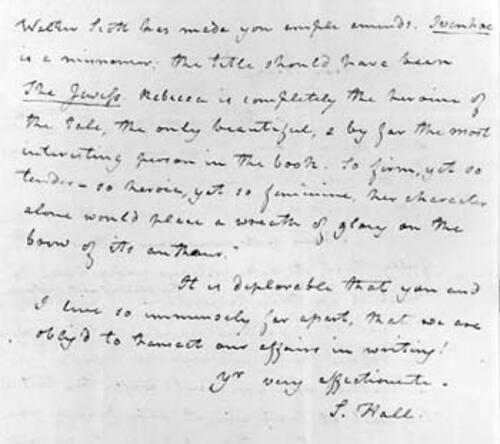 Walter Scott has made you ample amends. Ivanhoe
is a misnomer; the title should have been
The Jewess. Rebecca is completely the heroine of
the tale, the only beautiful, & by far the most
interesting person in the book. So firm, yet so
tender – so heroic, yet so feminine, her character
alone would place a wreath of glory on the
brow of its author."
It is deplorable that you and
I live so immensely far apart, that we are
oblig'd to transact our affairs in writing!
yr very affectionate.
S. Hall.